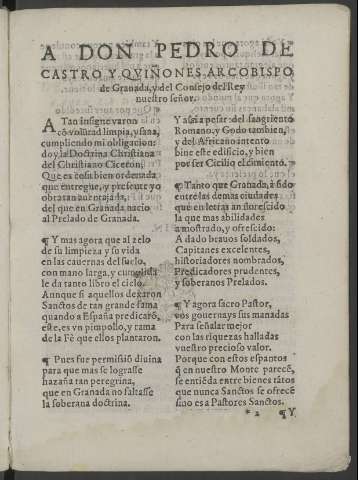 A DON PEDRO DE
CASTRO Y QVIÑONES, ARÇOBISPO
de Granada, y del Consejo del Rey
nuestro señor.
A Tan insigne varon
cō volūtad limpia, y sana,
cumpliendo mi obligacion:
doy la Doctrina Christiana
del Christiano Ciceron:
Que es cosa bien ordenada
que entregue, y presente yo
obra tan auentajada,
del que en Granada nacio
al Prelado de Granada.
¶ Y mas agora que al zelo
de su limpieza y su vida
en las cauernas del suelo,
con mano larga, y cumplida
le da tanto libro el cielo.
Aunque si aquellos dexaron
Sanctos de tan grande fama
quando a España predicarō,
este, es vn pimpollo, y rama
de la Fê que ellos plantaron.
¶ Pues fue permisiō diuina
para que mas se lograsse
hazaña tan peregrina,
que en Granada no faltasse
la soberana doctrina.
Y assi a pesar del sangriento
Romano, y Godo tambien,
y del Africano intento
bine este edificio, y bien
por ser Cicilio el cimiento.
¶ Tanto que Granada, a sido
entre las demas ciudades
que en letras an florescido
la que mas abilidades
a mostrado, y ofrescido:
A dado brauos soldados,
Capitanes excelentes,
historiadores nombrados,
Predicadores prudentes,
y soberanos Prelados.
¶ Y agora sacro Pastor,
vos gouernays sus manadas
Para señalar mejor
con las riquezas halladas
vuestro precioso valor.
Porque con estos espantos
q̄ en nuestro Monte parecē,
se entiēda entre bienes tātos
que nunca Sanctos se ofrecē
sino es a Pastores Sanctos.
* 2 ¶ Y